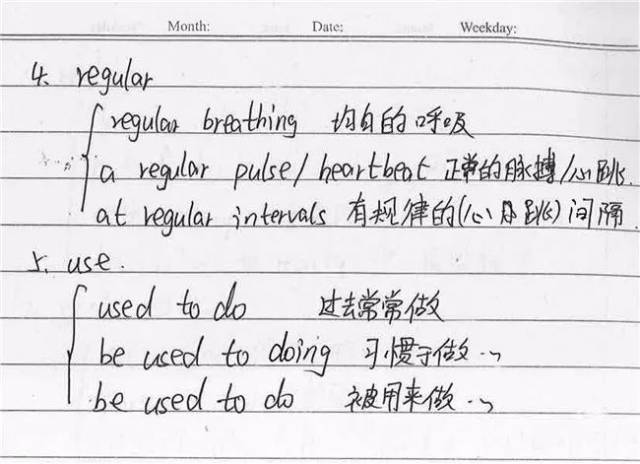 Month: Date: Weekday:
4. regular
regular breathing 均匀的呼吸
a regular pulse/heartbeat 正常的脉搏/心跳
at regular intervals 有规律的(心跳)间隔
5. use.
used to do 过去常常做
be used to doing 习惯于做...
be used to do 被用来做...